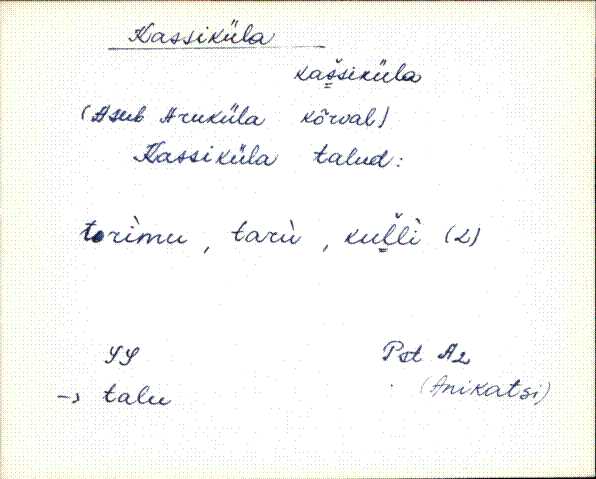 Kassiküla
kas̆siküla
(Asub Aruküla kõrval)
Kassiküla talud:
torìmu, tarù, kul̆lì (2)
Pst A2
(Anikatsi)
→ talu